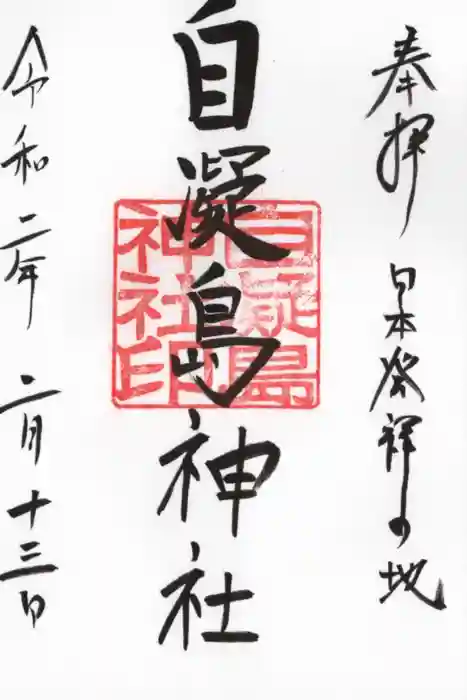 奉拝 日本発祥の地
自凝島神社
自凝島神社印
令和二年 二月十三日